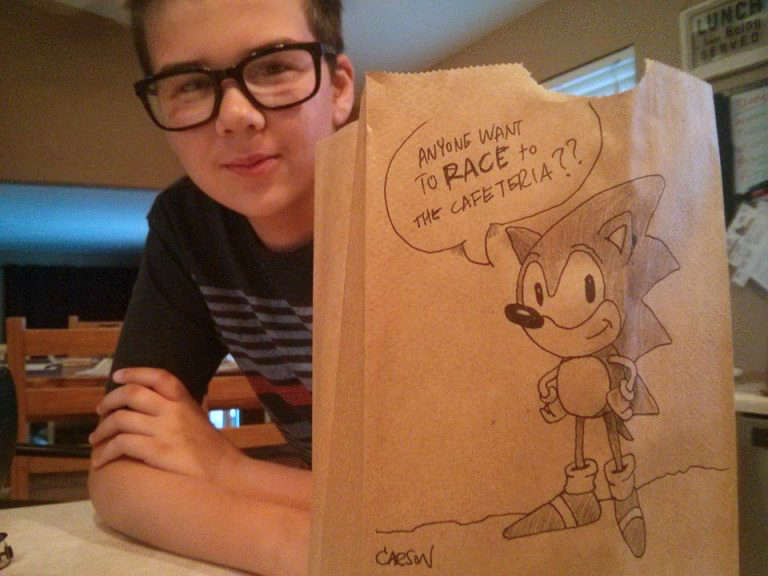 LUNCH
is being
SERVED
ANYONE WANT
TO RACE to
THE CAFETERIA??
CARSON